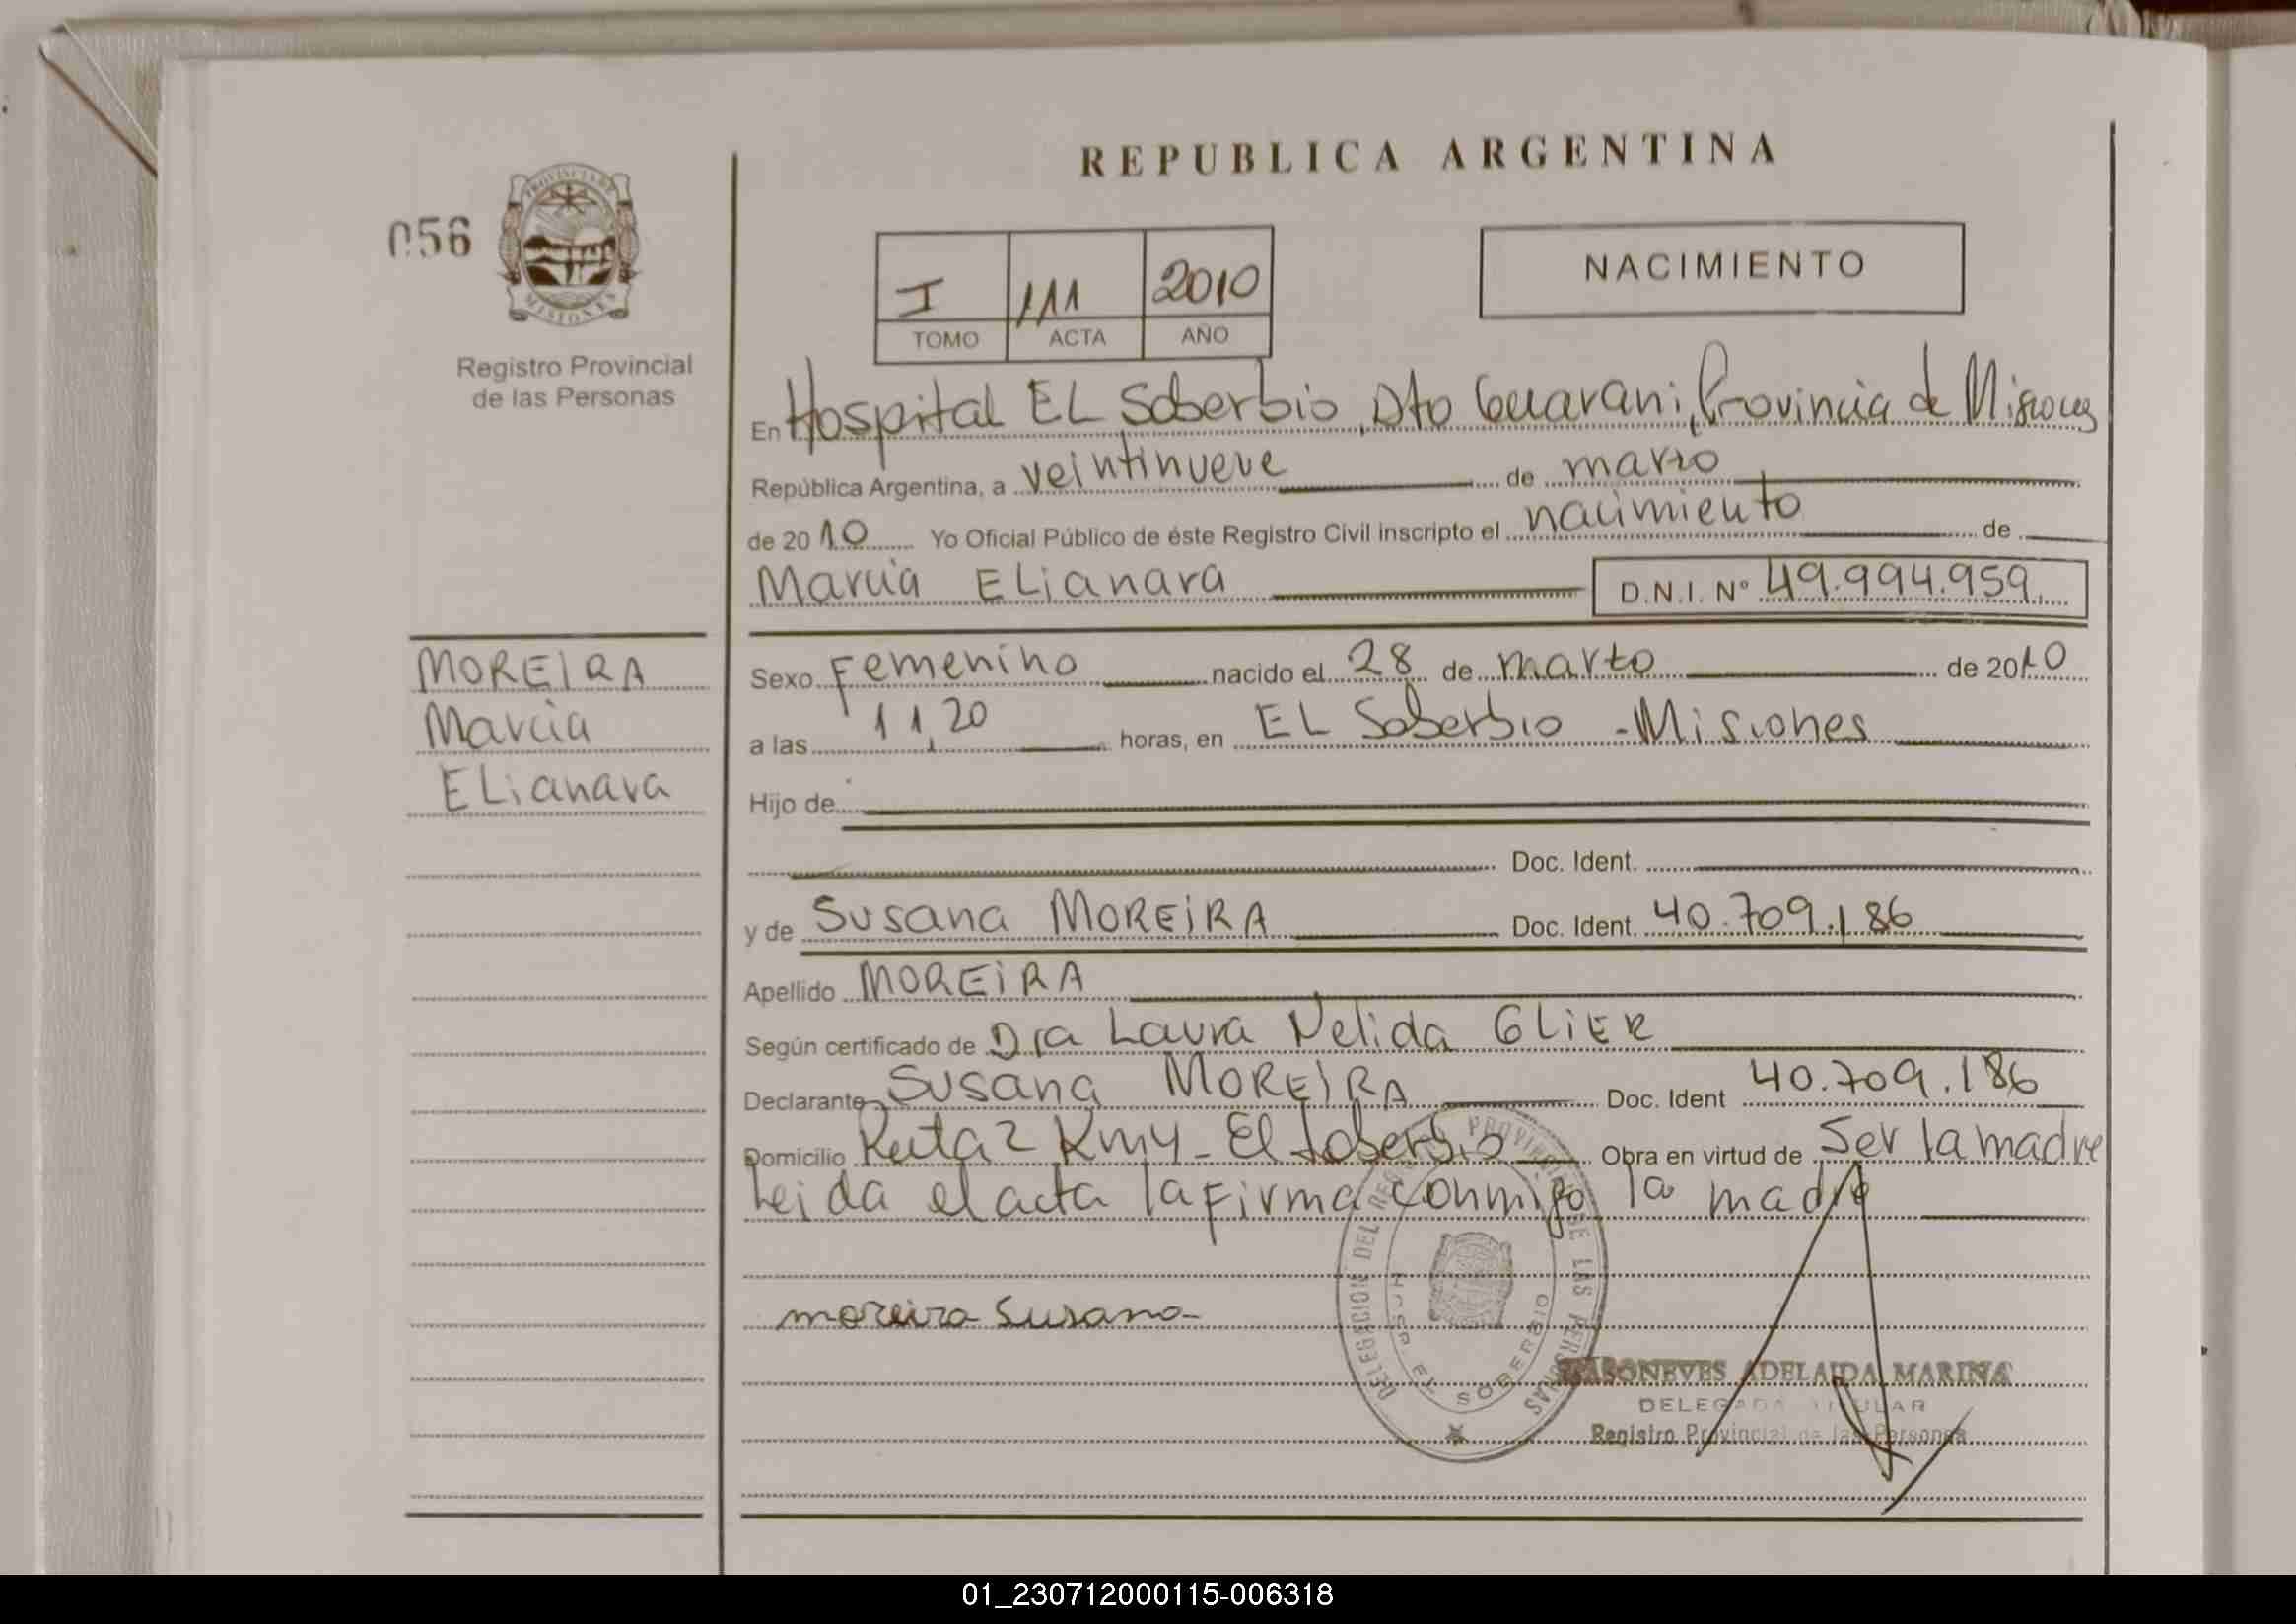 REPUBLICA ARGENTINA
056
PROVINCIA DE
MISIONES
Registro Provincial
de las Personas
I 111 2010
TOMO ACTA AÑO
NACIMIENTO
En Hospital EL Soberbio, Dto Guarani, Provincia de Misiones
República Argentina, a veintinueve de marzo
de 2010 Yo Oficial Público de éste Registro Civil inscripto el nacimiento de
Marcia ELianara D.N.I. Nº 49.994.959
MOREIRA
Marcia
ELianara
Sexo Femenino nacido el 28 de marzo de 2010
a las 11,20 horas, en EL Soberbio - Misiones
Hijo de
Doc. Ident.
y de Susana MOREIRA Doc. Ident. 40.709.186
Apellido MOREIRA
Según certificado de Dra Laura Nelida GLIER
Declarante Susana MOREIRA Doc. Ident 40.709.186
Domicilio Ruta 2 Km 4 - El Soberbio Obra en virtud de Ser la madre
Leida el acta la firma conmigo la madre
moreira Susana
DELEGACION DEL REGISTRO PROVINCIAL DE LAS PERSONAS
EL SOBERBIO
ADELAIDA MARINA
DELEGADA TITULAR
Registro Provincial de las Personas
01_230712000115-006318